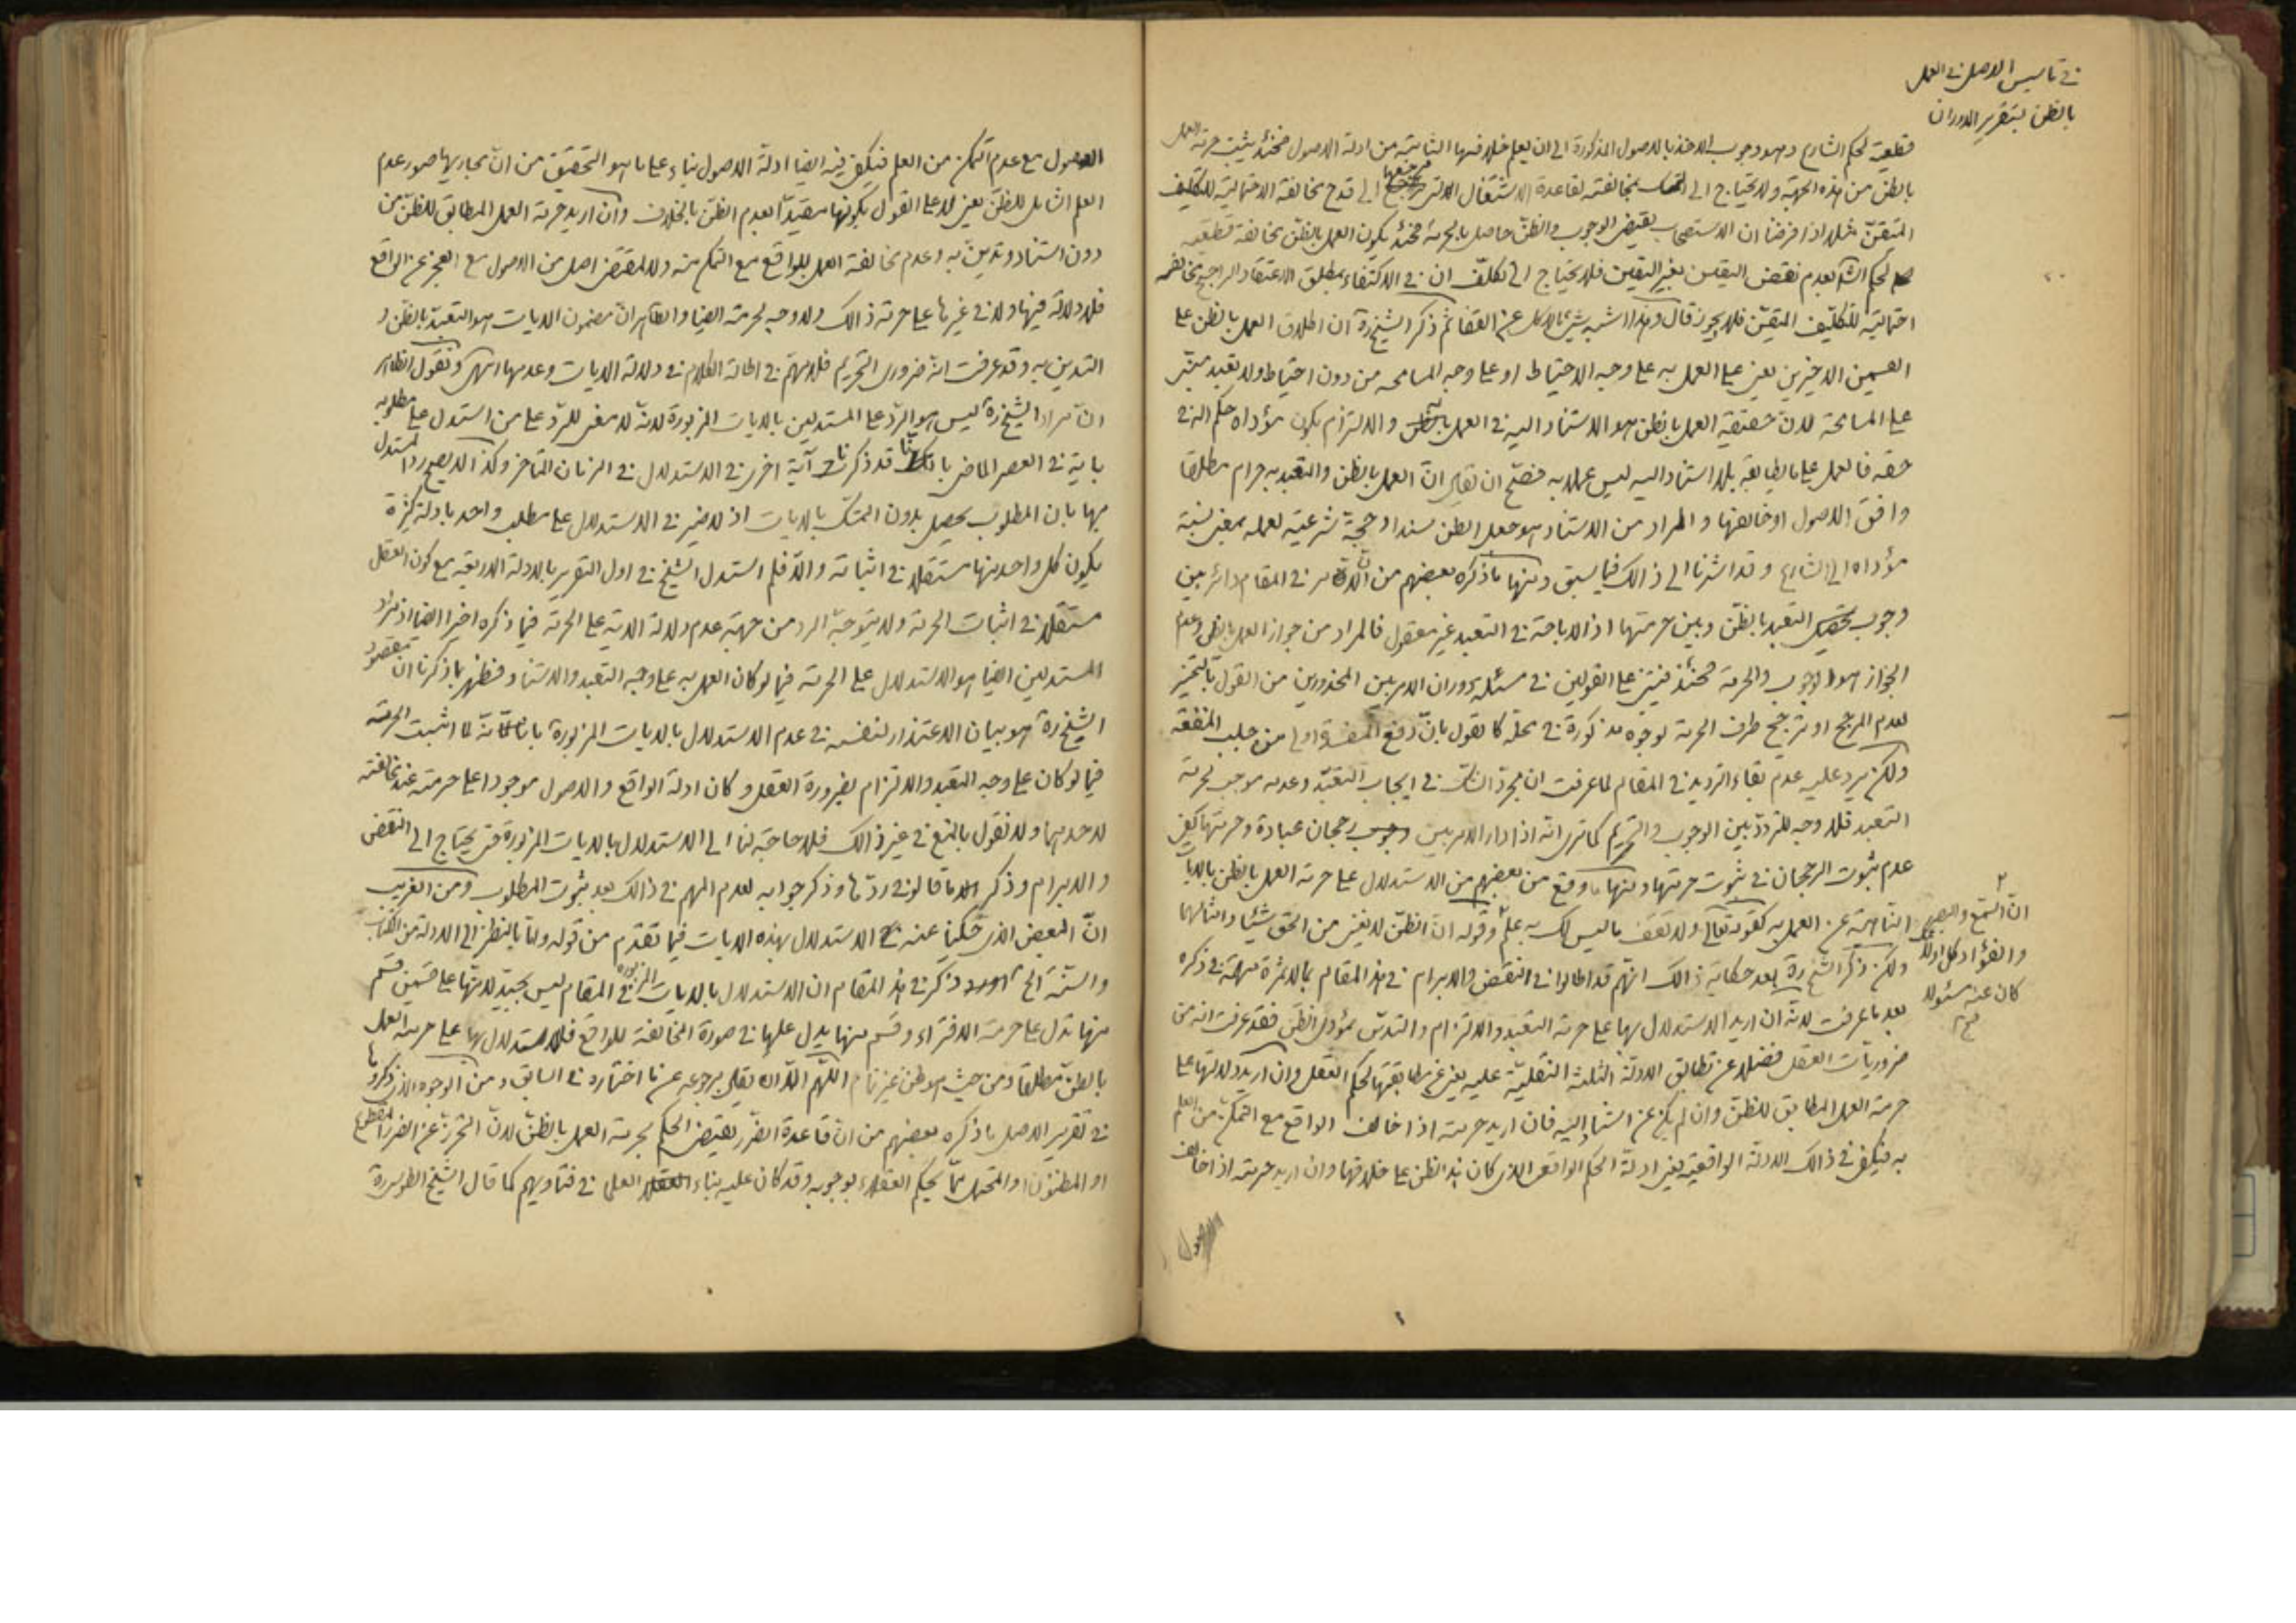 في تأسيس الاصل في العمل
بالظن بتقرير الدوران
قطعية لحكم الشارع وهو وجوب الاخذ بالاصول المذكورة الى ان يعلم خلافها الثابتة من ادلة الاصول فحينئذ يثبت حرمة العمل
بالظن من هذه الجهة ولا يحتاج الى التمسك بمخالفته لقاعدة الاشتغال التي مرجعها الى قدح مخالفة الاحتمالية للتكليف
المتيقن مثلا اذا فرضنا ان الاستصحاب يقتضي الوجوب والظن حاصل بالحرمة فحينئذ يكون العمل بالظن مخالفة قطعية
لحكم الشارع بعدم نقض اليقين بغير اليقين فلا يحتاج الى تكلف ان في الاكتفاء بمطلق الاعتقاد الراجح مخالفة
احتمالية للتكليف المتيقن فلا يجوز قال وهذا اشبه شيء بالاكل عن القفا ثم ذكر الشيخ ره ان اطلاق العمل بالظن على
القسمين الاخيرين يعني على العمل به على وجه الاحتياط او على وجه المسامحة من دون احتياط ولا تعبد مبني
على المسامحة لان حقيقة العمل بالظن هو الاستناد اليه في العمل والالتزام بكون مؤداه حكم الله في
حقه فالعمل على ما يطابقه بلا استناد اليه ليس عملا به فصح ان يقال ان العمل بالظن والتعبد به حرام مطلقا
وافق الاصول او خالفها والمراد من الاستناد هو جعل الظن سندا وحجة شرعية لعمله بمعنى نسبة
مؤداه الى الشارع وقد اشرنا الى ذالك فيما سبق ومنها ما ذكره بعضهم من ان الامر في المقام دائر بين
وجوب تحصيل التعبد بالظن وبين حرمتها اذ الاباحة في التعبد غير معقول فالمراد من جواز العمل بالظن وعدم
الجواز هو الوجوب والحرمة فحينئذ فيبنى على القولين في مسئلة دوران الامر بين المحذورين من القول بالتخيير
لعدم المرجح او ترجيح طرف الحرمة لوجوه مذكورة في محله كما نقول بان دفع المفسدة اولى من جلب المنفعة
ولكن يرد عليه عدم بقاء الترديد في المقام لما عرفت ان مجرد الشك في ايجاب التعبد وعدمه موجب لحرمة
التعبد فلا وجه للتردد بين الوجوب والتحريم كما ترى انه اذا دار الامر بين رجحان عبادة وحرمتها يكفي
عدم ثبوت الرجحان في ثبوت حرمتها ومنها ما وقع من بعضهم من الاستدلال على حرمة العمل بالظن بالايات
الناهية عن العمل به كقوله تعالى ولا تقف ما ليس لك به علم وقوله ان الظن لا يغني من الحق شيئا وامثالهما
ان السمع والبصر
والفؤاد كل اولئك
كان عنه مسئولا
ولكن ذكر الشيخ ره بعد حكاية ذالك انهم قد اطالوا في النقض والابرام في هذا المقام بما لا ثمرة مهمة في ذكره
بعد ما عرفت لانه ان اريد الاستدلال بها على حرمة التعبد والالتزام والتدين بمؤدى الظن فقد عرفت انه من
ضروريات العقل فضلا عن تطابق الادلة الثلثة النقلية عليه يعني عن مطابقتها لحكم العقل وان اريد دلالتها على
حرمة العمل المطابق للظن وان لم يكن عن استناد اليه فان اريد حرمته اذا خالف الواقع مع التمكن من العلم
به فيكفي في ذالك الادلة الواقعية يعني ادلة الحكم الواقعي الذي كان هذا الظن على خلافها وان اريد حرمته اذا خالف
الاصول
الاصول مع عدم التمكن من العلم فيكفي فيه ايضا ادلة الاصول بناء على ما هو التحقيق من ان مجاريها صور عدم
العلم الشامل للظن يعني لا على القول بكونها مقيدا بعدم الظن بالخلاف وان اريد حرمة العمل المطابق للظن من
دون استناد وتدين به وعدم مخالفة العمل للواقع مع التمكن منه ولا لمقتضى اصل من الاصول مع العجز عن الواقع
فلا دلالة فيها ولا في غيرها على حرمة ذالك ولا وجه لحرمته ايضا والظاهر ان مضمون الايات هو التعبد بالظن و
التدين به وقد عرفت انه ضروري التحريم فلا مهم في اطالة الكلام في دلالة الايات وعدمها انتهى ونقول الظاهر
ان مراد الشيخ ره ليس هو الرد على المستدلين بالايات المزبورة لانه لا معنى للرد على من استدل على مطلوبه
باية في العصر الماضي قد ذكرنا آية اخرى في الاستدلال في الزمان المتأخر وكذا لا يصح رد المستدل
بها بان المطلوب يحصل بدون التمسك بالايات اذ لا ضير في الاستدلال على مطلب واحد بادلة كثيرة
يكون كل واحد منها مستقلا في اثباته والا فلم استدل الشيخ في اول التقرير بالادلة الاربعة مع كون العقل
مستقلا في اثبات الحرمة ولا يتوجه الرد من جهة عدم دلالة الاية على الحرمة فيما ذكره اخيرا ايضا اذ مراد
المستدلين ايضا هو الاستدلال على الحرمة فيما لو كان العمل به على وجه التعبد والاستناد فظهر بما ذكرنا ان مقصود
الشيخ ره هو بيان الاعتذار لنفسه في عدم الاستدلال بالايات المزبورة لما اثبت الحرمة
فيما لو كان على وجه التعبد والالتزام بضرورة العقل وكان ادلة الواقع والاصول موجودا على حرمته عند مخالفته
لاحدهما ولا نقول بالمنع في غير ذالك فلا حاجة لنا الى الاستدلال بالايات المزبورة حتى يحتاج الى النقض
والابرام وذكر ما قالوا في ردها وذكر جوابه لعدم المهم في ذالك بعد ثبوت المطلوب ومن الغريب
ان البعض الذي حكينا عنه الاستدلال بهذه الايات فيما تقدم من قوله ولنا بالنظر الى الادلة من الكتاب
والسنة الخ ذكر في هذا المقام ان الاستدلال بالايات المزبورة في المقام ليس بجيد لانها على قسمين قسم
منها تدل على حرمة الافتراء وقسم منها يدل عليها في صورة المخالفة للواقع فلا استدلال بها على حرمة العمل
بالظن مطلقا ومن حيث هو ظن غير تام اللهم الا ان يقال برجوعه عن ما اختاره في السابق ومن الوجوه الذي ذكروها
في تقرير الاصل ما ذكره بعضهم من ان قاعدة الضرر يقتضي الحكم بحرمة العمل بالظن لان التحرز عن الضرر المقطوع
او المظنون او المحتمل مما يحكم العقلاء بوجوبه وقد كان عليه بناء العلماء في فتاويهم كما قال الشيخ الطوسي ره